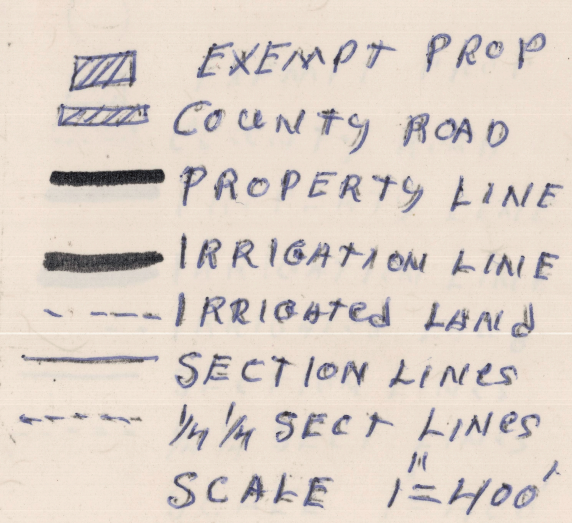 EXEMPT PROP
COUNTY ROAD
PROPERTY LINE
IRRIGATION LINE
IRRIGATEd LANd
SECTION LINES
1/4 1/4 SECT LINES
SCALE 1"=400'